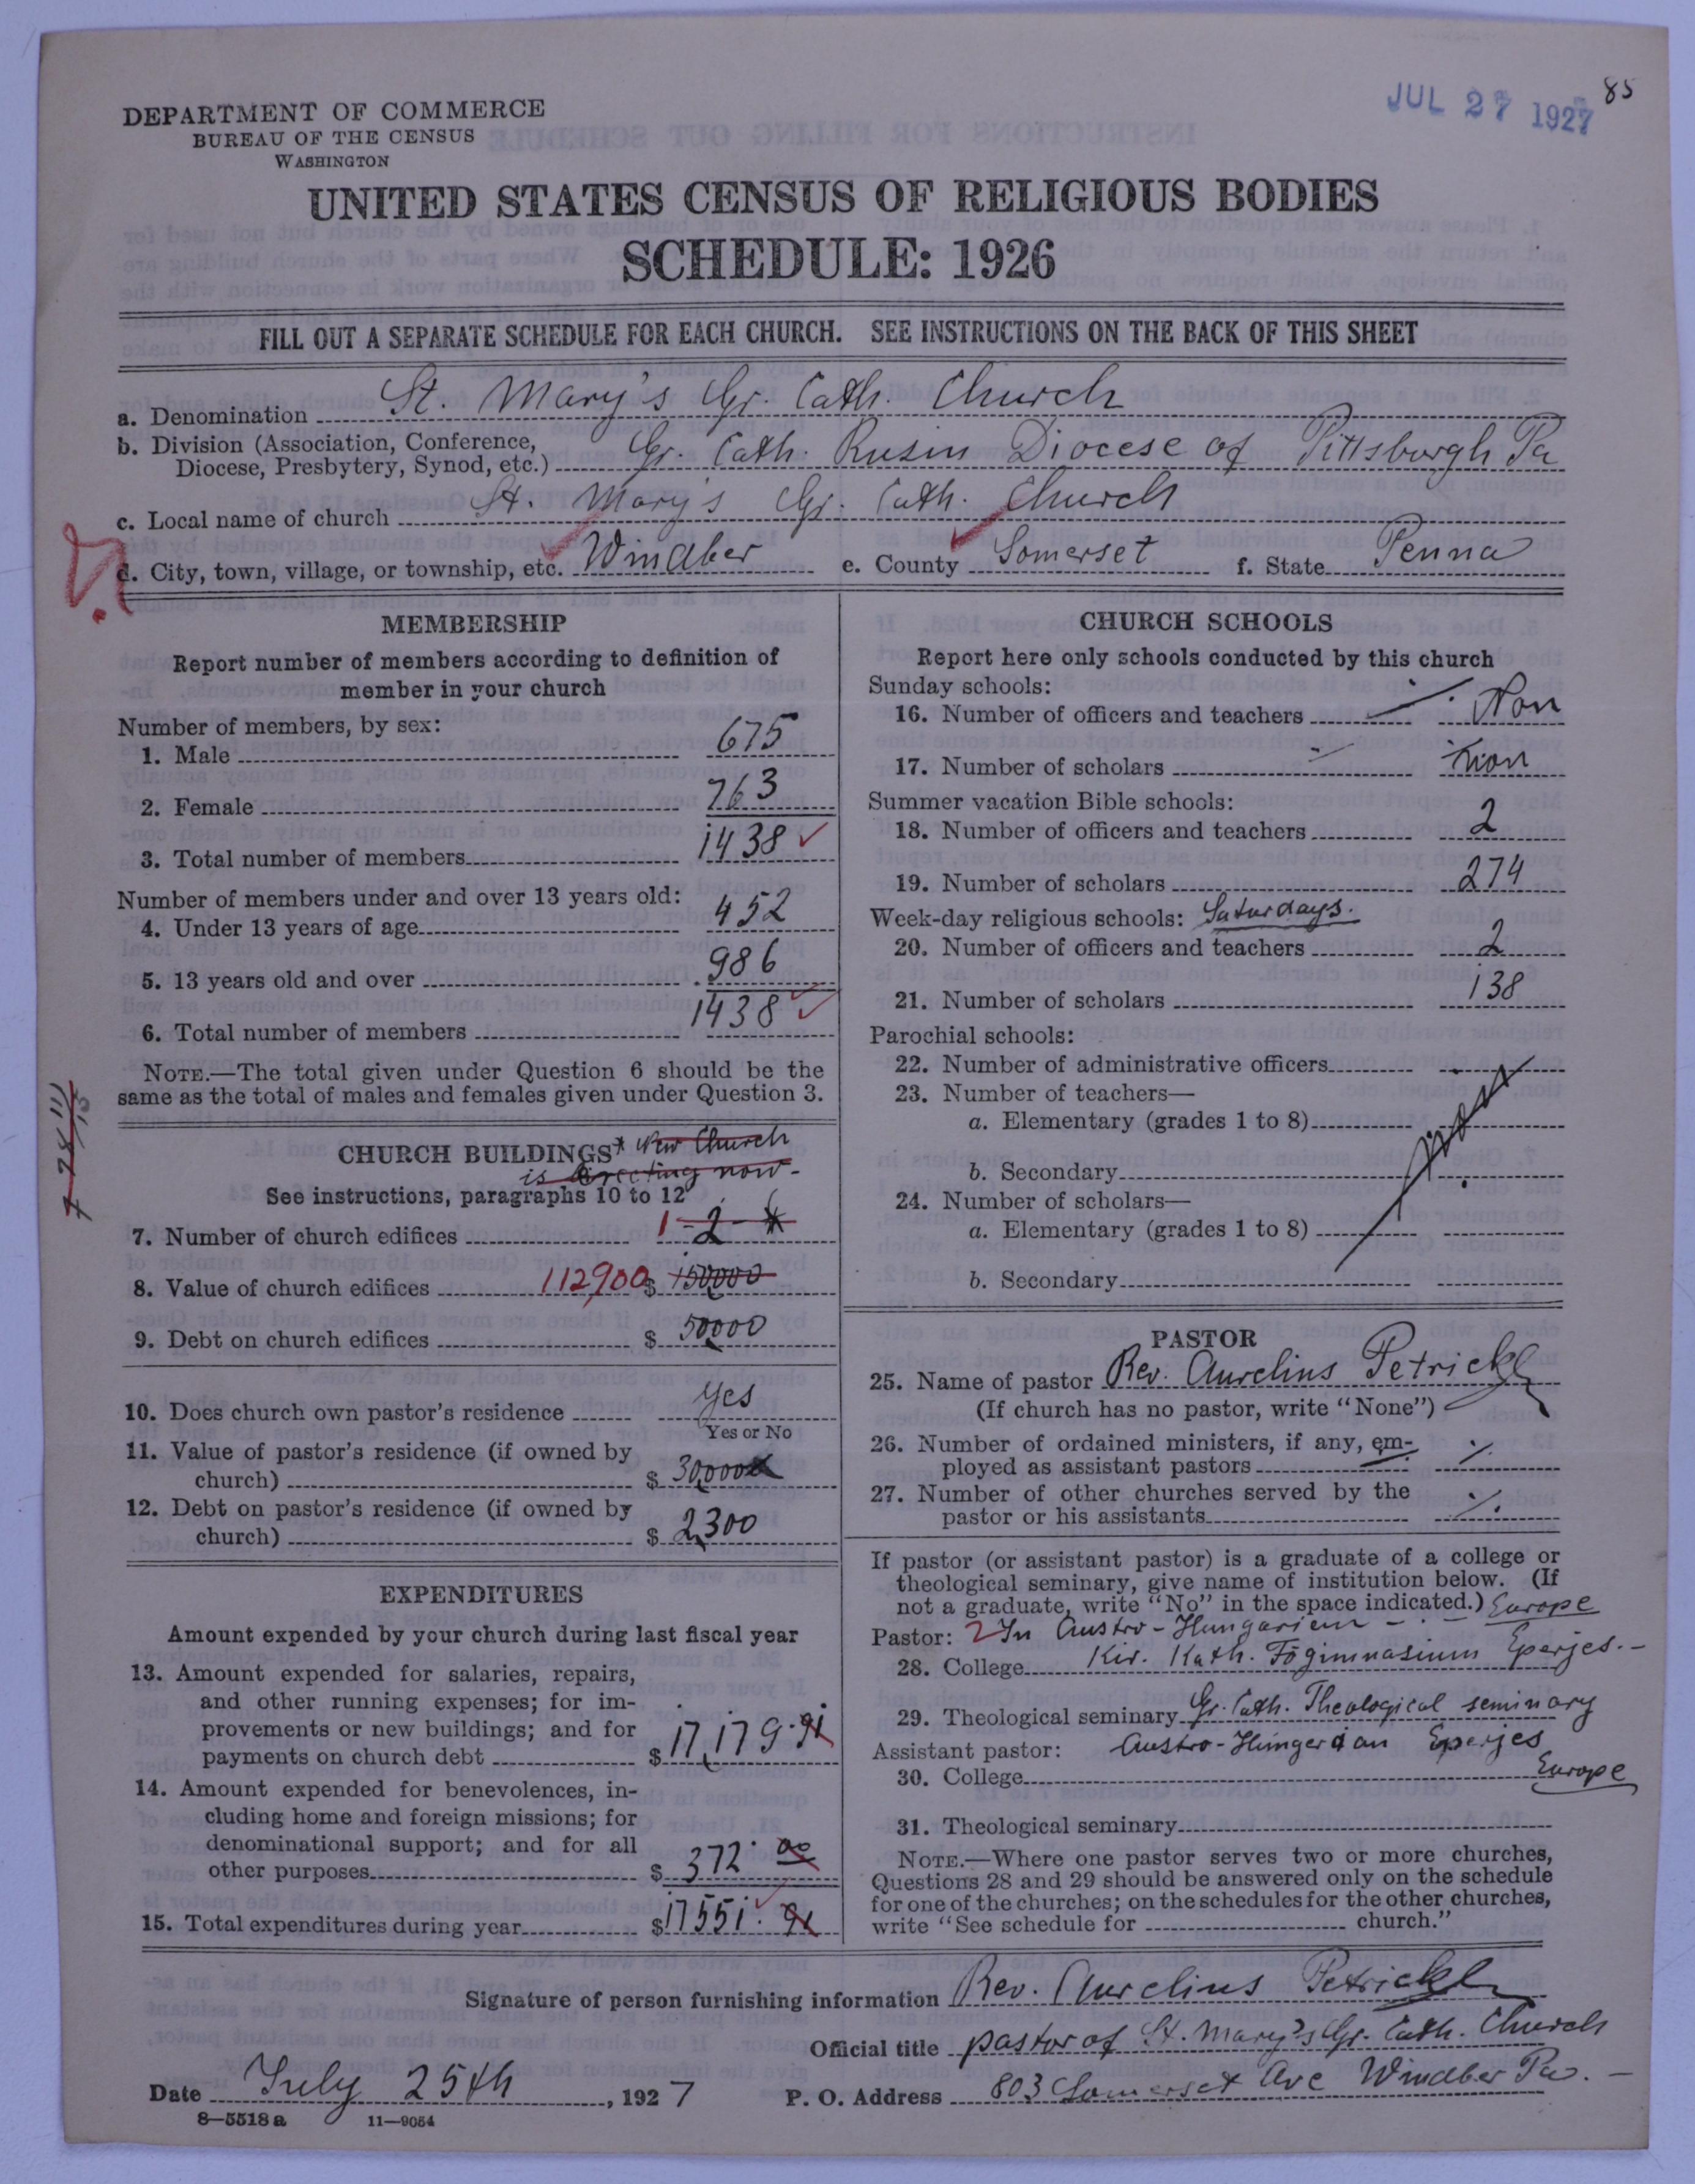 JUL 27 1927 85
DEPARTMENT OF COMMERCE
BUREAU OF THE CENSUS
WASHINGTON
UNITED STATES CENSUS OF RELIGIOUS BODIES
SCHEDULE: 1926
FILL OUT A SEPARATE SCHEDULE FOR EACH CHURCH. SEE INSTRUCTIONS ON THE BACK OF THIS SHEET
a. Denomination St. Mary's Gr. Cath. Church
b. Division (Association, Conference,
Diocese, Presbytery, Synod, etc.) Gr. Cath. Rusin Diocese of Pittsburgh Pa
c. Local name of church St. Mary's Gr. Cath. Church
d. City, town, village, or township, etc. Windber e. County Somerset f. State Penna
MEMBERSHIP
Report number of members according to definition of
member in your church
Number of members, by sex:
1. Male 675
2. Female 763
3. Total number of members 1438
Number of members under and over 13 years old:
4. Under 13 years of age 452
5. 13 years old and over 986
6. Total number of members 1438
NOTE.—The total given under Question 6 should be the
same as the total of males and females given under Question 3.
CHURCH BUILDINGS * New Church
is erecting now -
See instructions, paragraphs 10 to 12
7. Number of church edifices 1 - 2 - *
8. Value of church edifices 112,900 $ 150000
9. Debt on church edifices $ 50,000
10. Does church own pastor's residence Yes
Yes or No
11. Value of pastor's residence (if owned by
church) $ 30,000
12. Debt on pastor's residence (if owned by
church) $ 2,300
EXPENDITURES
Amount expended by your church during last fiscal year
13. Amount expended for salaries, repairs,
and other running expenses; for im-
provements or new buildings; and for
payments on church debt $ 17,179.91
14. Amount expended for benevolences, in-
cluding home and foreign missions; for
denominational support; and for all
other purposes $ 372.00
15. Total expenditures during year $ 17551.91
CHURCH SCHOOLS
Report here only schools conducted by this church
Sunday schools:
16. Number of officers and teachers Non
17. Number of scholars non
Summer vacation Bible schools:
18. Number of officers and teachers 2
19. Number of scholars 274
Week-day religious schools: Saturdays.
20. Number of officers and teachers 2
21. Number of scholars 138
Parochial schools:
22. Number of administrative officers
23. Number of teachers—
a. Elementary (grades 1 to 8)
b. Secondary
24. Number of scholars—
a. Elementary (grades 1 to 8)
b. Secondary
PASTOR
25. Name of pastor Rev. Aurelius Petrick
(If church has no pastor, write "None")
26. Number of ordained ministers, if any, em-
ployed as assistant pastors ./.
27. Number of other churches served by the
pastor or his assistants ./.
If pastor (or assistant pastor) is a graduate of a college or
theological seminary, give name of institution below. (If
not a graduate, write "No" in the space indicated.) Europe
Pastor: 2 In Austro-Hungarien -
28. College Kir. Kath. Fögimnasium Eperjes. -
29. Theological seminary Gr. Cath. Theological seminary
Assistant pastor: Austro-Hungerian Eperjes
30. College Europe
31. Theological seminary
NOTE.—Where one pastor serves two or more churches,
Questions 28 and 29 should be answered only on the schedule
for one of the churches; on the schedules for the other churches,
write "See schedule for church."
Signature of person furnishing information Rev. Aurelius Petrick
Official title pastor of St. Mary's Gr. Cath. Church
Date July 25th, 1927 P. O. Address 803 Somerset Ave Windber Pa. -
8—5518 a 11—9054